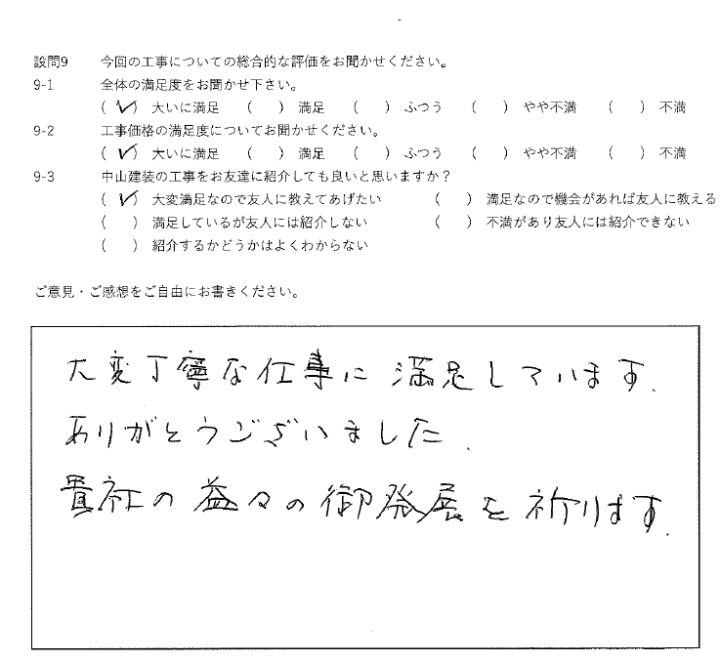 設問9 今回の工事についての総合的な評価をお聞かせください。
9-1 全体の満足度をお聞かせ下さい。
(✓) 大いに満足 ( ) 満足 ( ) ふつう ( ) やや不満 ( ) 不満
9-2 工事価格の満足度についてお聞かせください。
(✓) 大いに満足 ( ) 満足 ( ) ふつう ( ) やや不満 ( ) 不満
9-3 中山建装の工事をお友達に紹介しても良いと思いますか？
(✓) 大変満足なので友人に教えてあげたい ( ) 満足なので機会があれば友人に教える
( ) 満足しているが友人には紹介しない ( ) 不満があり友人には紹介できない
( ) 紹介するかどうかはよくわからない
ご意見・ご感想をご自由にお書きください。
大変丁寧な仕事に満足しています.
ありがとうございました.
貴社の益々の御発展を祈ります.